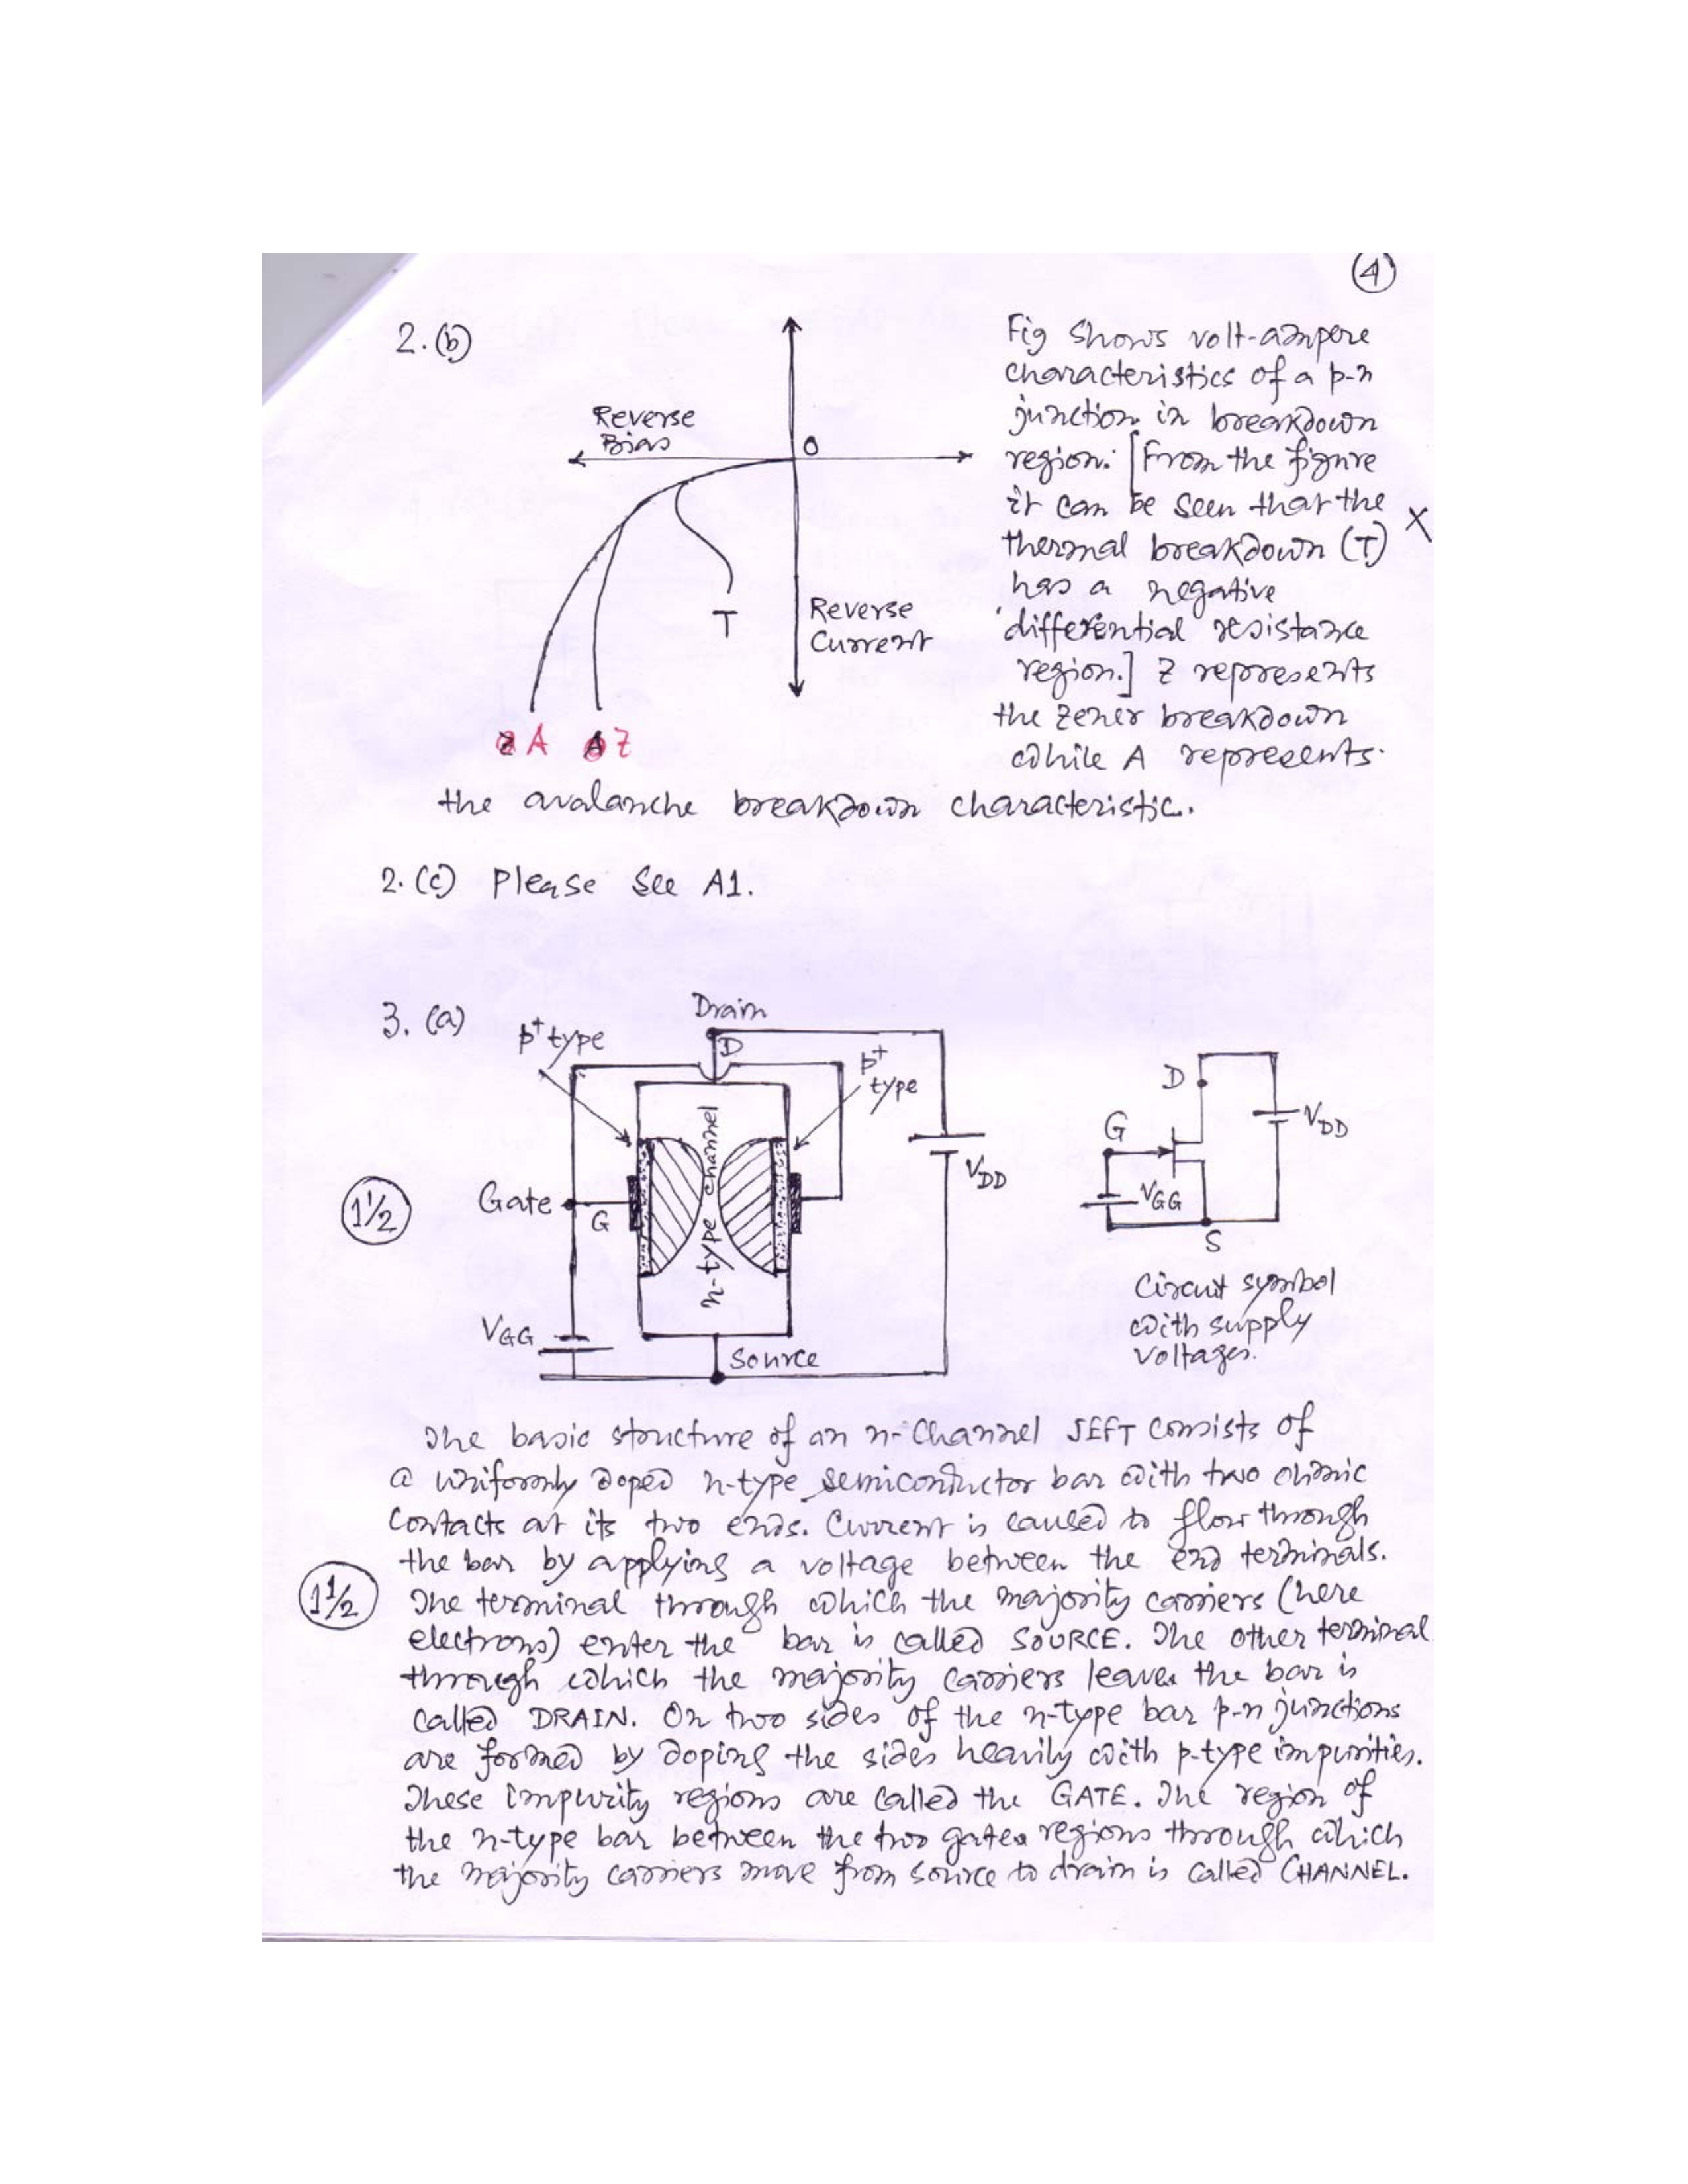 4
2.(b)
Reverse
Bias
O
T
Reverse
Current
A Z
Fig shows volt-ampere
characteristics of a p-n
junction in breakdown
region. [From the figure
it can be seen that the
thermal breakdown (T) X
has a negative
differential resistance
region.] Z represents
the zener breakdown
while A represents
the avalanche breakdown characteristic.
2.(c) Please see A1.
3. (a)
Drain
p+ type
D
p+
type
n-type channel
Gate
G
VDD
VGG
Source
1½
D
G
VDD
VGG
S
Circuit symbol
with supply
voltages.
The basic structure of an n-Channel JEFT consists of
a uniformly doped n-type semiconductor bar with two ohmic
contacts at its two ends. Current is caused to flow through
the bar by applying a voltage between the end terminals.
1½
The terminal through which the majority carriers (here
electrons) enter the bar is called SOURCE. The other terminal
through which the majority carriers leaves the bar is
called DRAIN. On two sides of the n-type bar p-n junctions
are formed by doping the sides heavily with p-type impurities.
These impurity regions are called the GATE. The region of
the n-type bar between the two gates regions through which
the majority carriers move from source to drain is called CHANNEL.